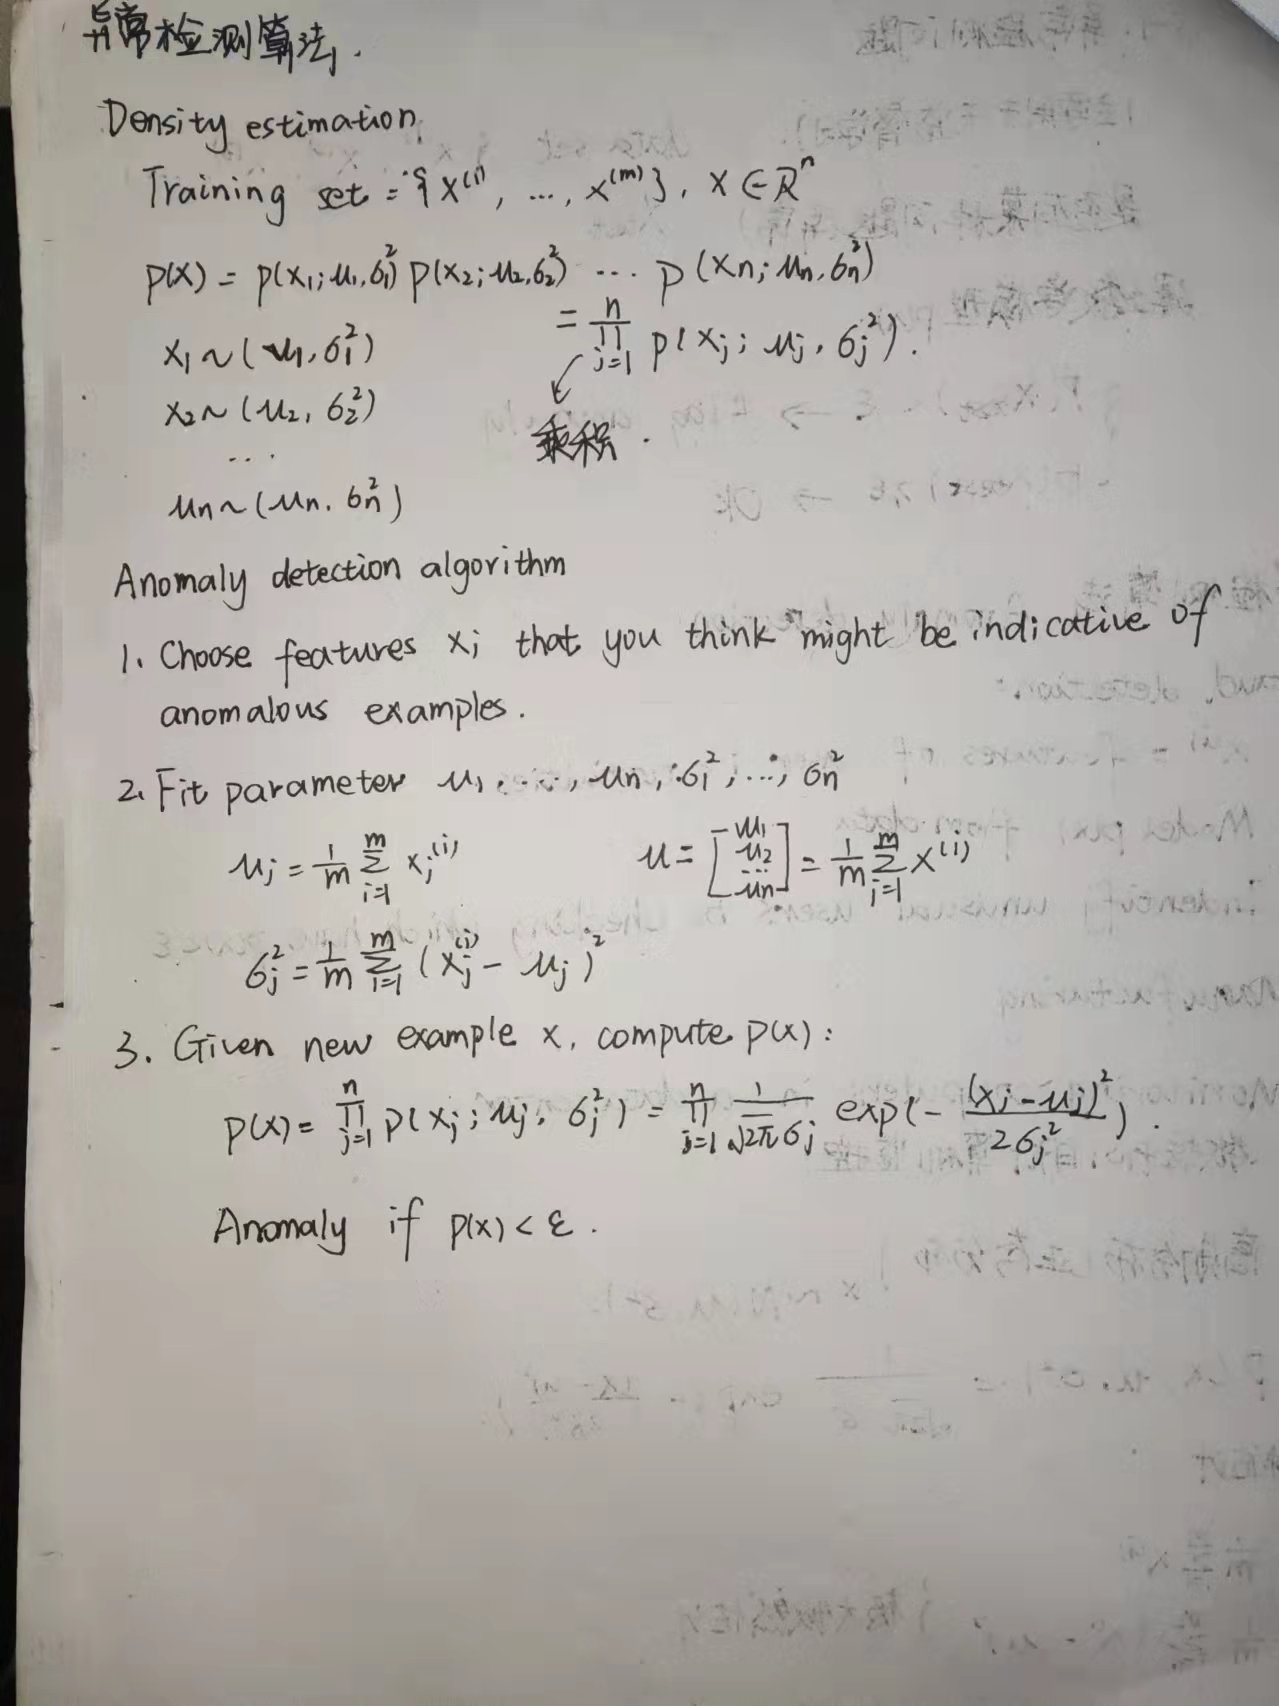 异常检测算法.
Density estimation
Training set = {x^(1), ..., x^(m)}, x ∈ R^n
p(x) = p(x₁; μ₁, σ₁²) p(x₂; μ₂, σ₂²) ... p(xn; μn, σn²)
= ∏_{j=1}^{n} p(xj; μj, σj²).
x₁ ~ (μ₁, σ₁²)
x₂ ~ (μ₂, σ₂²)
乘积.
...
μn ~ (μn, σn²)
Anomaly detection algorithm
1. Choose features xi that you think might be indicative of
anomalous examples.
2. Fit parameter μ₁, ..., μn, σ₁², ..., σn²
μj = 1/m ∑_{i=1}^{m} xj^(i)    μ = [μ₁ μ₂ ... μn] = 1/m ∑_{i=1}^{m} x^(i)
σj² = 1/m ∑_{i=1}^{m} (xj^(i) - μj)²
3. Given new example x, compute p(x):
p(x) = ∏_{j=1}^{n} p(xj; μj, σj²) = ∏_{j=1}^{n} 1/(√2π σj) exp(- (xj - μj)²/2σj²).
Anomaly if p(x) < ε.